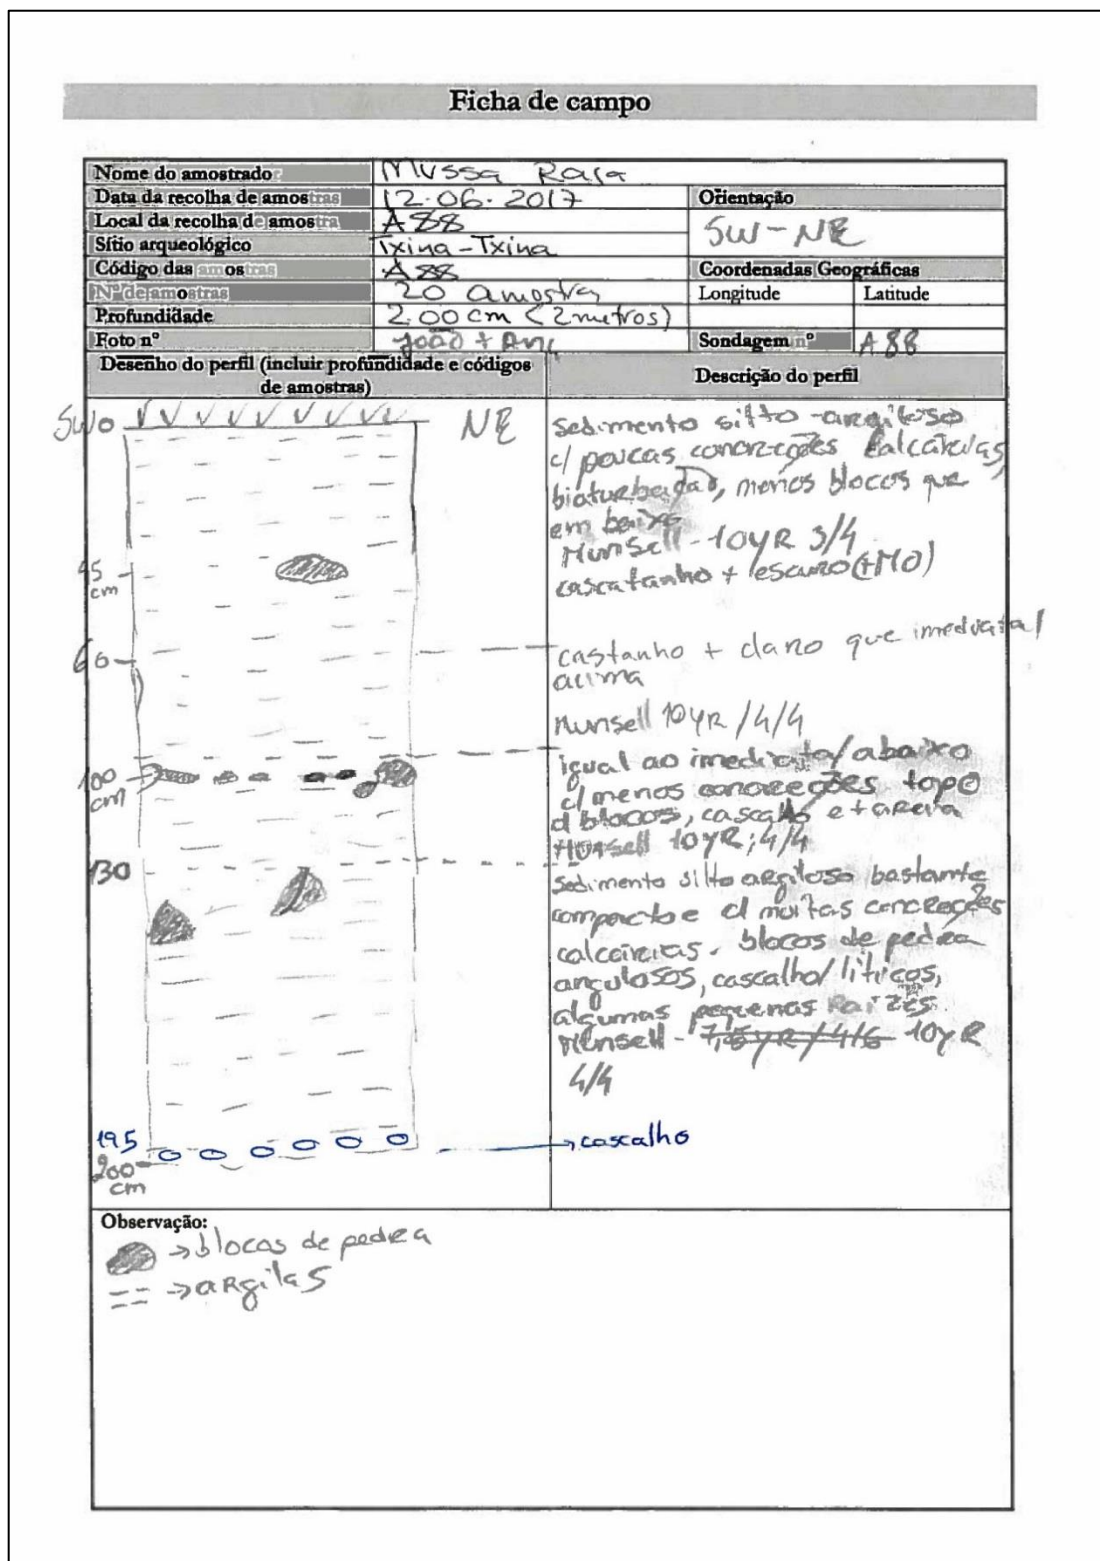 Ficha de campo
Nome do amostrado Mussa Raja
Data da recolha de amostras 12.06.2017 Orientação
Local da recolha de amostra A88 SW-NE
Sítio arqueológico Txina-Txina
Código das amostras A88 Coordenadas Geográficas
Nº de amostras 20 amostra Longitude Latitude
Profundidade 2.00 cm (2 metros)
Foto nº João + Ana Sondagem nº A88
Desenho do perfil (incluir profundidade e códigos de amostras) Descrição do perfil
SW 0 NE
sedimento silto-argiloso
c/ poucas concreções calcárias,
bioturbação, menos blocos que
em baixo
Munsell - 10YR 3/4
cascatanho + escuro (+MO)
cm
60
castanho + claro que imediata/
acima
Munsell 10YR /4/4
igual ao imediata/ abaixo
100
cm
c/ menos concreções topo
d blocos, cascalho e + areia
Munsell 10YR; 4/4
130
sedimento silto argiloso bastante
compacto e c/ muitas concreções
calcárias. blocos de pedra
angulosos, cascalho/líticos,
algumas pequenas raízes.
Munsell - 7,5YR/4/6 10YR
4/4
195
cascalho
200
cm
Observação:
→ blocos de pedra
→ argilas